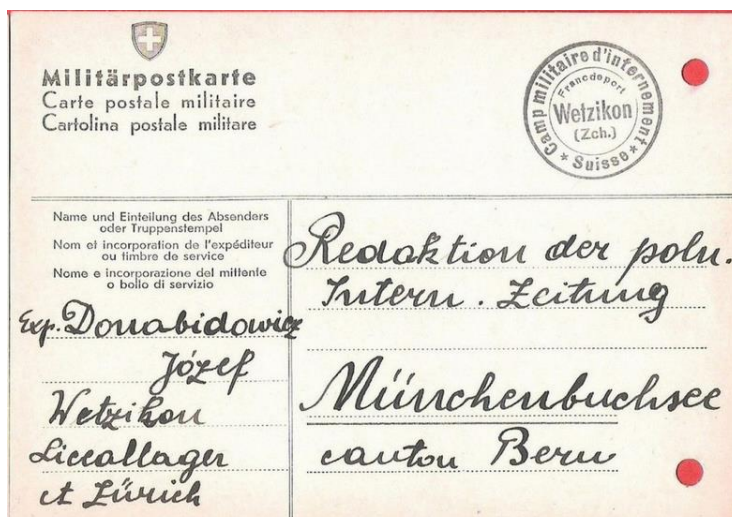 Militärpostkarte
Carte postale militaire
Cartolina postale militare
Camp militaire d'internement
Francdeport
Wetzikon
(Zch.)
* Suisse *
Name und Einteilung des Absenders
oder Truppenstempel
Nom et incorporation de l'expéditeur
ou timbre de service
Nome e incorporazione del mittente
o bollo di servizio
Exp. Donabidowicz
Józef
Wetzikon
Liceallager
ct Zürich
Redaktion der poln.
Intern. Zeitung
Münchenbuchsee
canton Bern